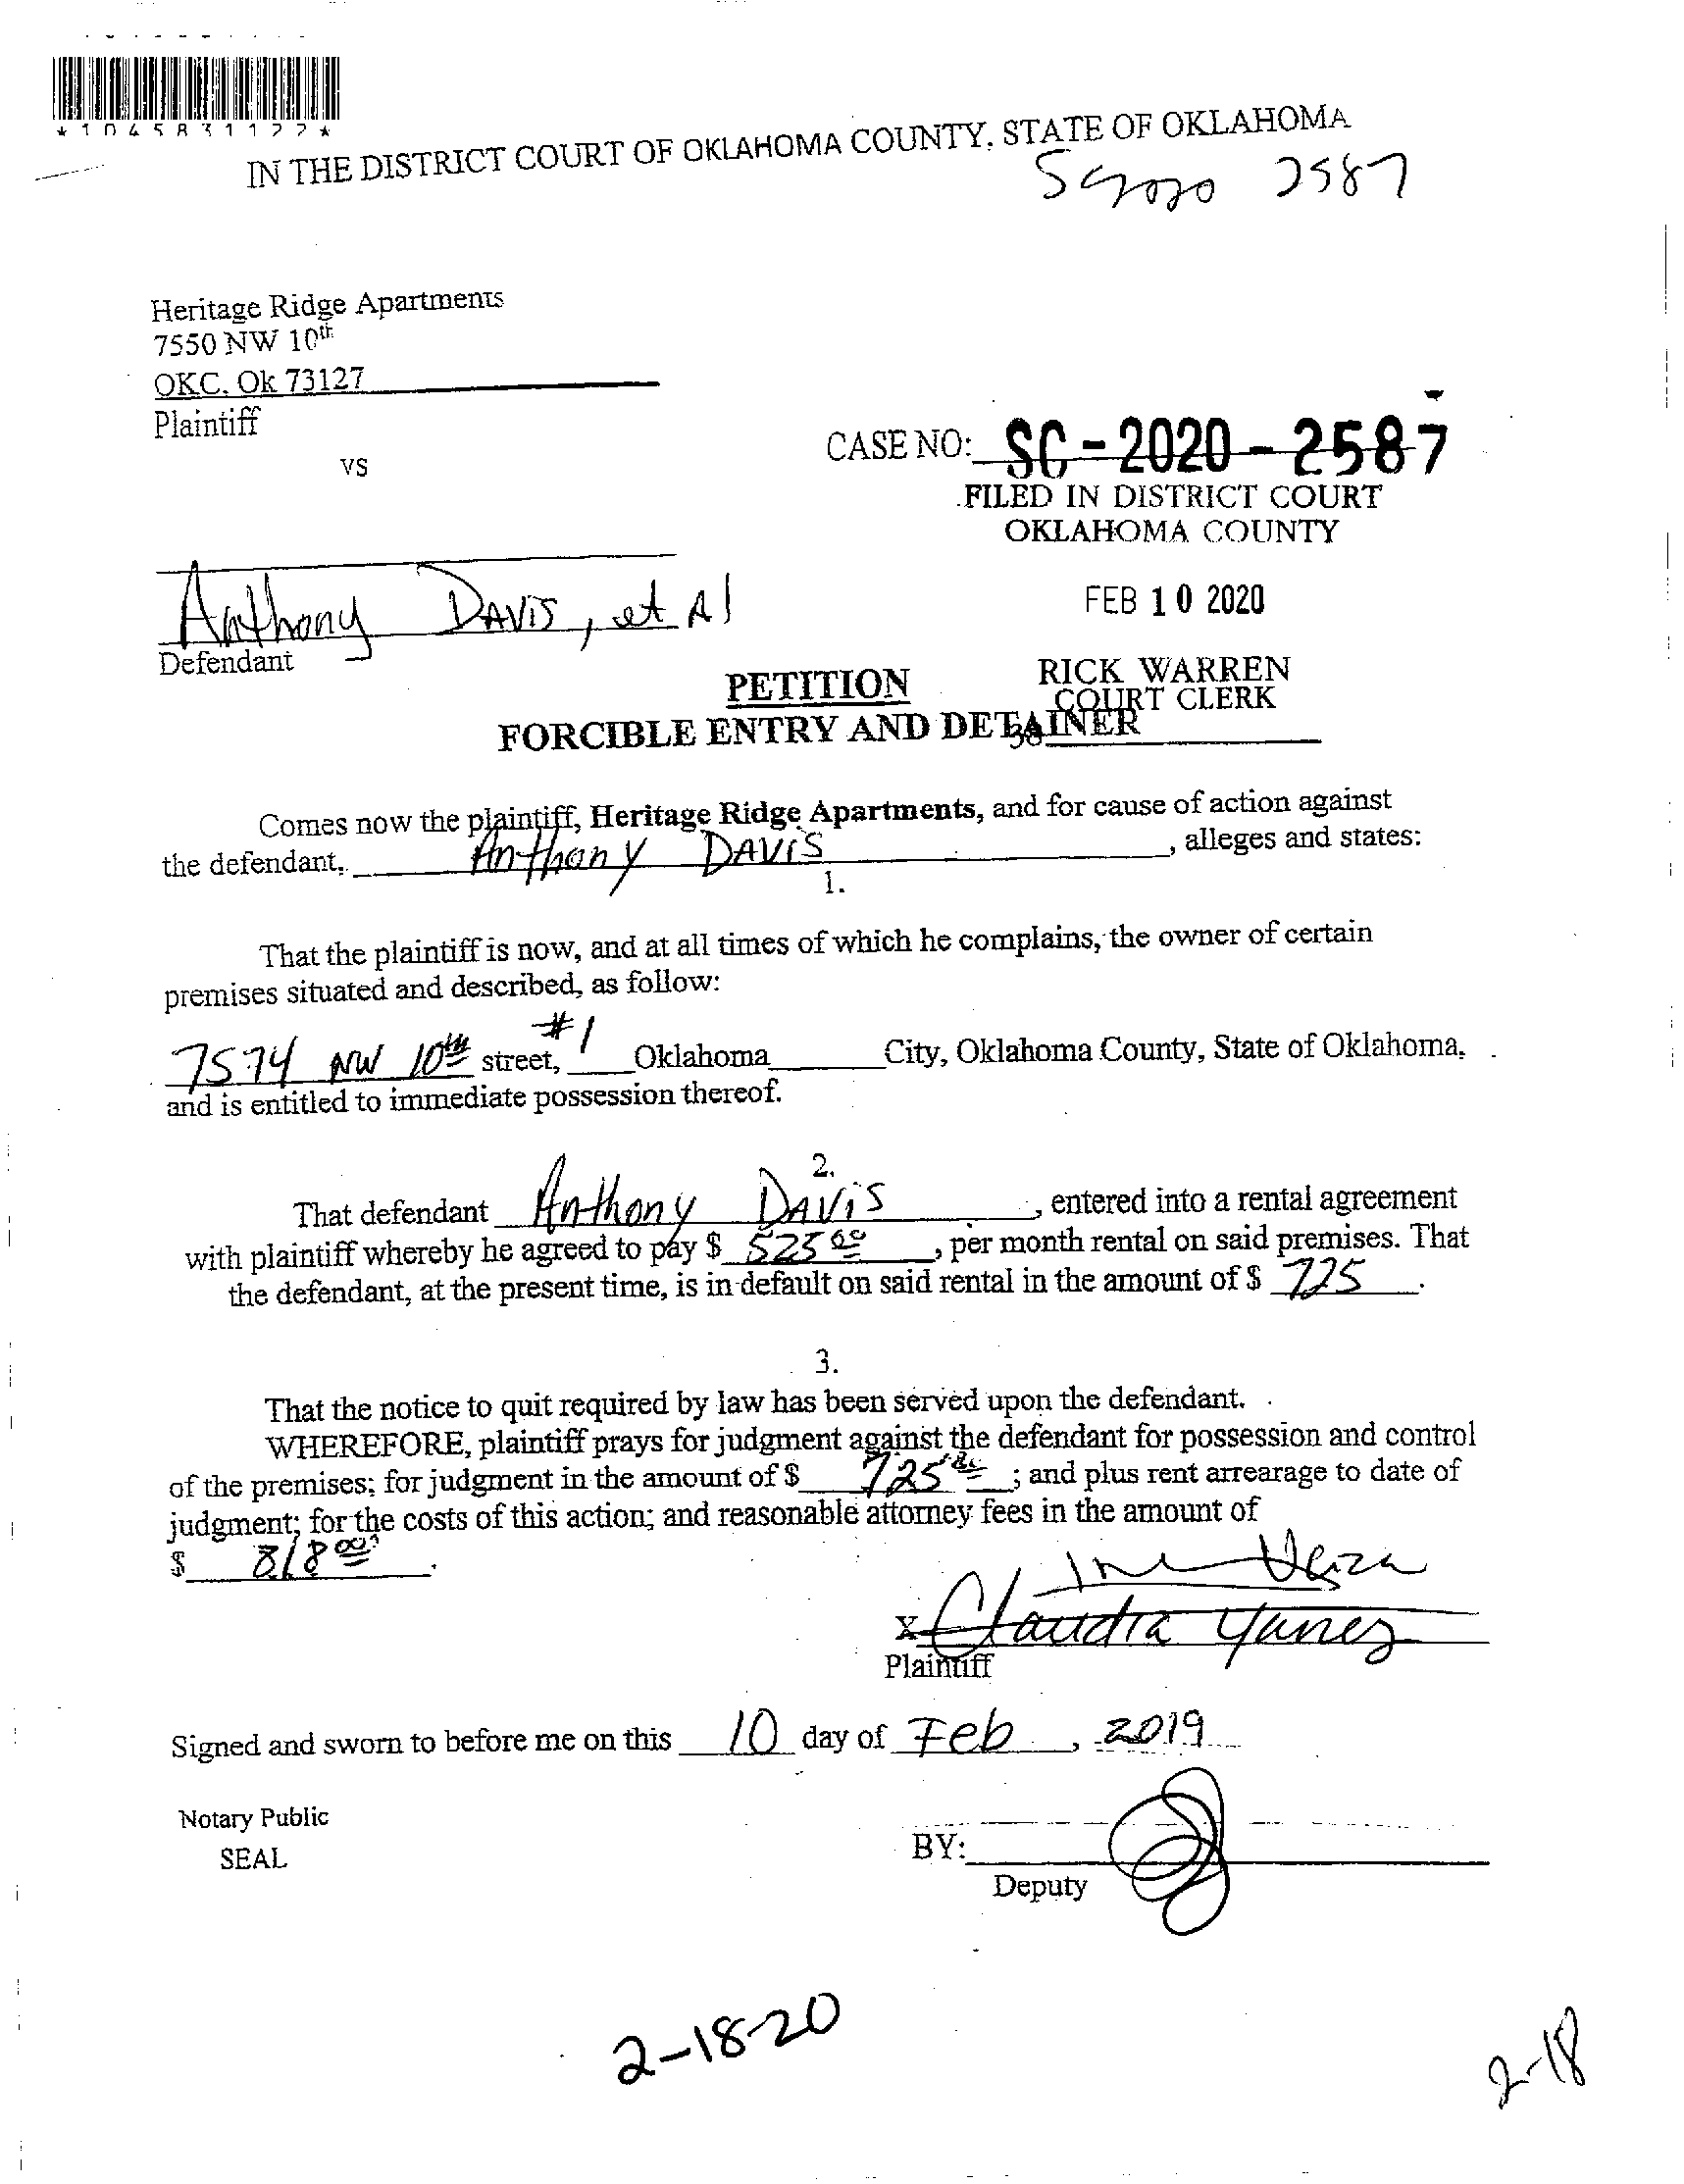 *1045831122*
IN THE DISTRICT COURT OF OKLAHOMA COUNTY, STATE OF OKLAHOMA
2587
Heritage Ridge Apartments
7550 NW 10th
OKC, Ok 73127
Plaintiff
VS
CASE NO: SC-2020-2587
FILED IN DISTRICT COURT
OKLAHOMA COUNTY
FEB 10 2020
Anthony DAVIS, et Al
Defendant
RICK WARREN
COURT CLERK
PETITION
FORCIBLE ENTRY AND DETAINER
Comes now the plaintiff, Heritage Ridge Apartments, and for cause of action against
the defendant, Anthony DAVIS, alleges and states:
1.
That the plaintiff is now, and at all times of which he complains, the owner of certain
premises situated and described, as follow:
7574 NW 10th street, #1 Oklahoma City, Oklahoma County, State of Oklahoma,
and is entitled to immediate possession thereof.
2.
That defendant Anthony DAVIS, entered into a rental agreement
with plaintiff whereby he agreed to pay $ 525 00, per month rental on said premises. That
the defendant, at the present time, is in default on said rental in the amount of $ 725.
3.
That the notice to quit required by law has been served upon the defendant.
WHEREFORE, plaintiff prays for judgment against the defendant for possession and control
of the premises; for judgment in the amount of $ 725 00; and plus rent arrearage to date of
judgment; for the costs of this action; and reasonable attorney fees in the amount of
$ 818 00.
X Claudia Yanez
Plaintiff
Signed and sworn to before me on this 10 day of Feb, 2019
Notary Public
SEAL
BY:
Deputy
2-18-20
2-18